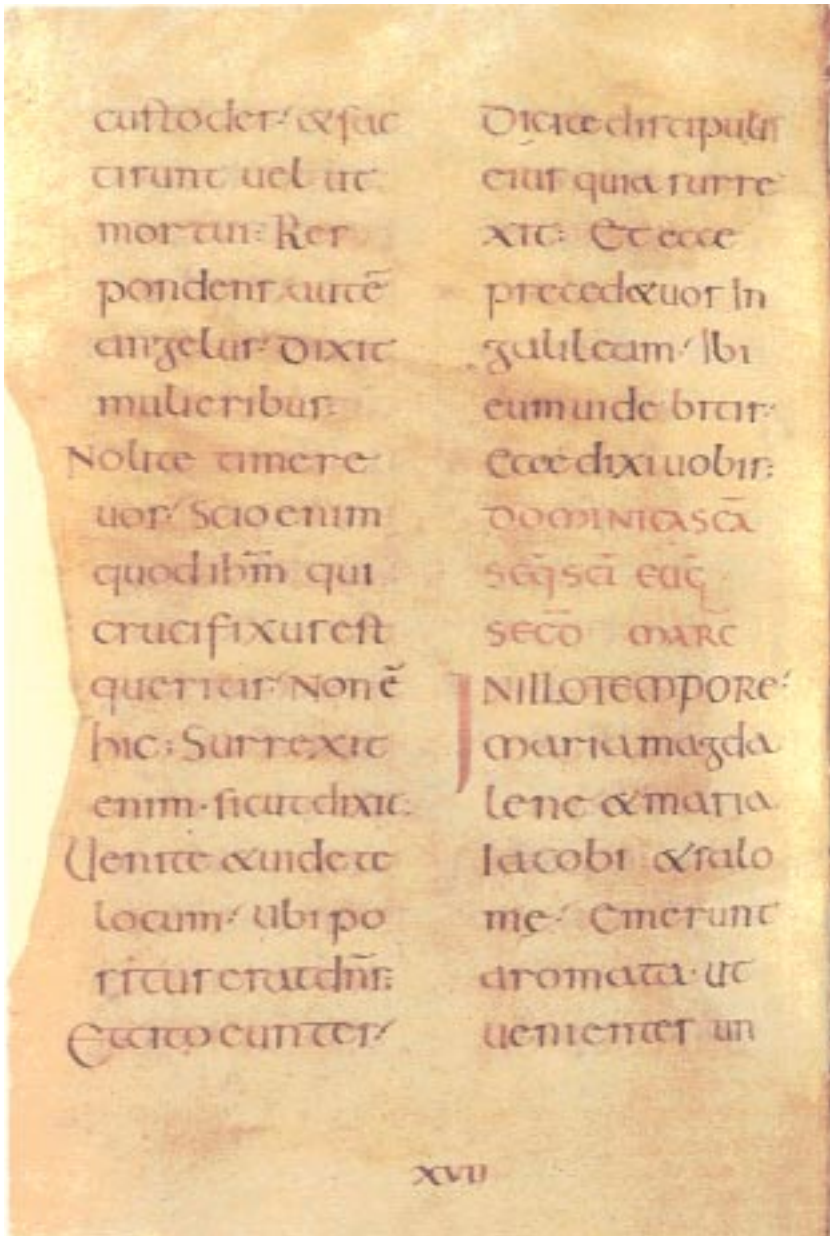 custodes; & fac
ti sunt uel ut
mortui; Res
pondens autē
angelus; Dixit
mulieribus;
Nolite timere
uos; Scio enim
quod ihm̄ qui
crucifixus est
queritis; Non ē
hic; Surrexit
enim. sicut dixit;
Uenite & uidete
locum; Ubi po
situs erat dn̄s;
Et cito euntes;
Dicite discipulis
eius quia surre
xit; Et ecce
preced& uos In
galileam; Ibi
eum uidebitis;
Ecce dixi uobis;
DOMINICA SCĀ
SEQ̄ SCĪ EUḠ
SECD̄ MARC̄
IN ILLO TEMPORE;
Maria magda
lene & maria
Iacobi & salo
mę; Emerunt
aromata. ut
uenientes un
XVII